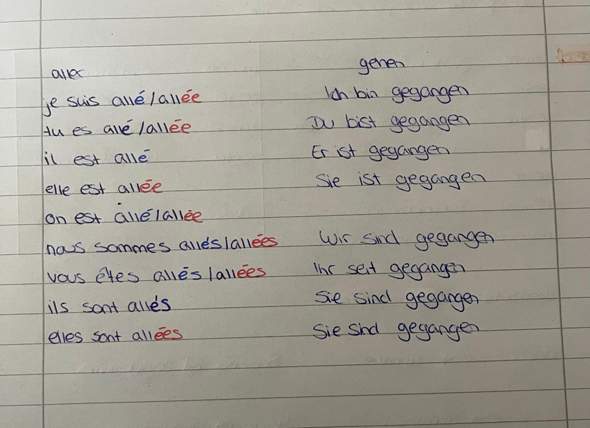 aller gehen
je suis allé/allée Ich bin gegangen
tu es allé/allée Du bist gegangen
il est allé Er ist gegangen
elle est allée Sie ist gegangen
on est allé/allée
nous sommes allés/allées Wir sind gegangen
vous êtes allés/allées Ihr seit gegangen
ils sont allés Sie sind gegangen
elles sont allées Sie sind gegangen